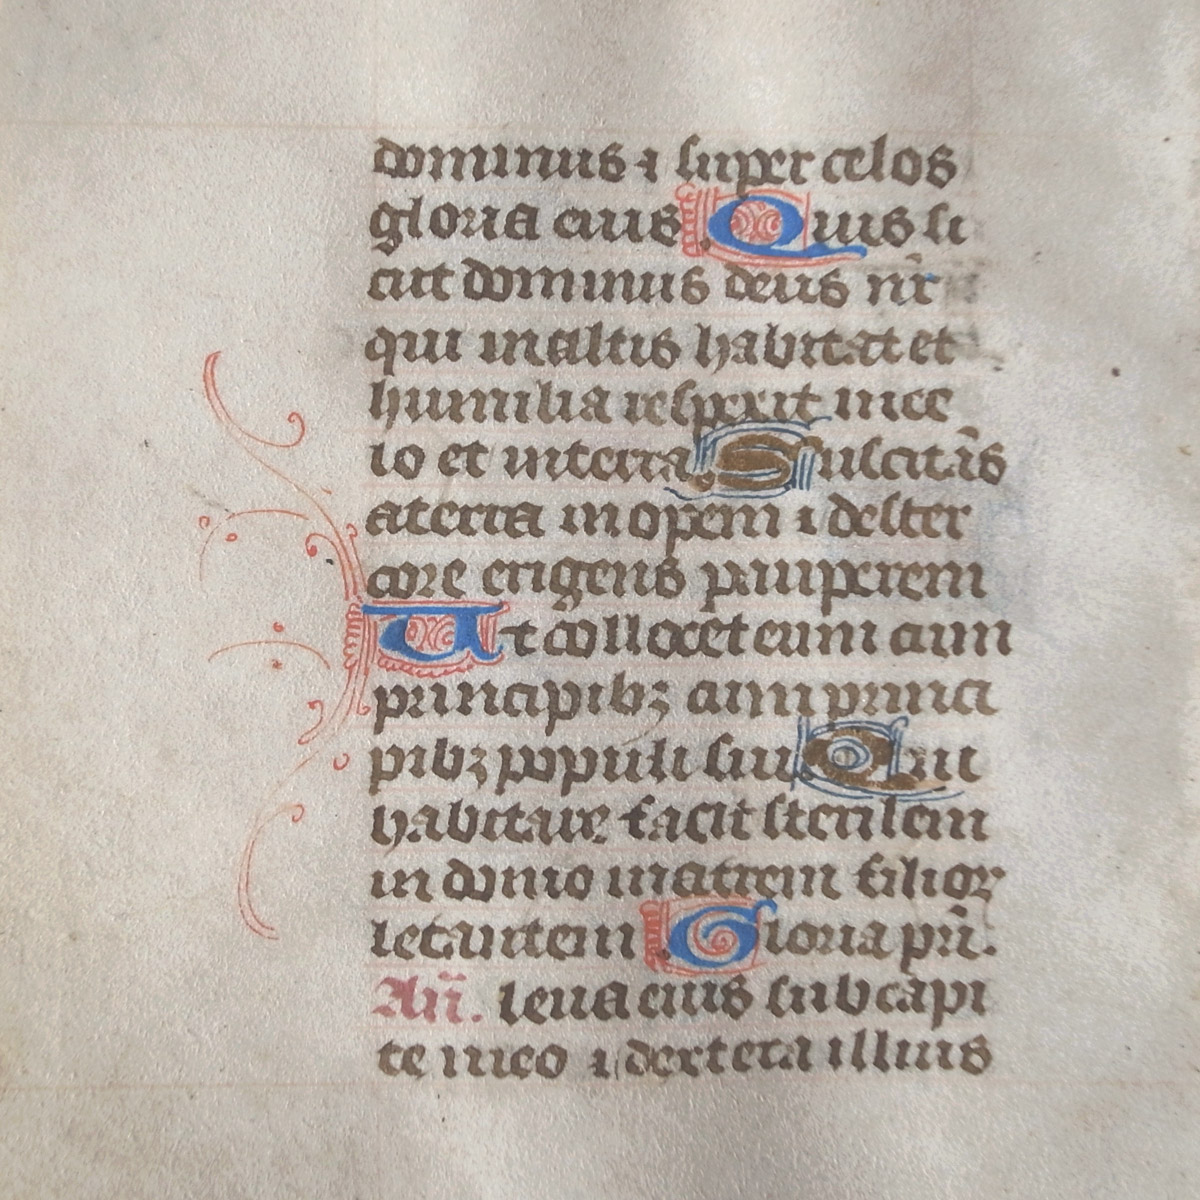 dominus ⁊ super celos
gloria eius. Quis si
cut dominus deus nr̄
qui inaltis habitat et
humilia respexit ince
lo et interra. Suscitās
aterra inopem ⁊ dester
core erigens pauperem
Ut collocet eum cum
principibꝫ cum princi
pibꝫ populi sui Qui
habitare facit sterilem
in domo matrem filioꝝ
letantem. Gloria pr̄i.
An̄. leua eius sub capi
te meo ⁊ dextera illius